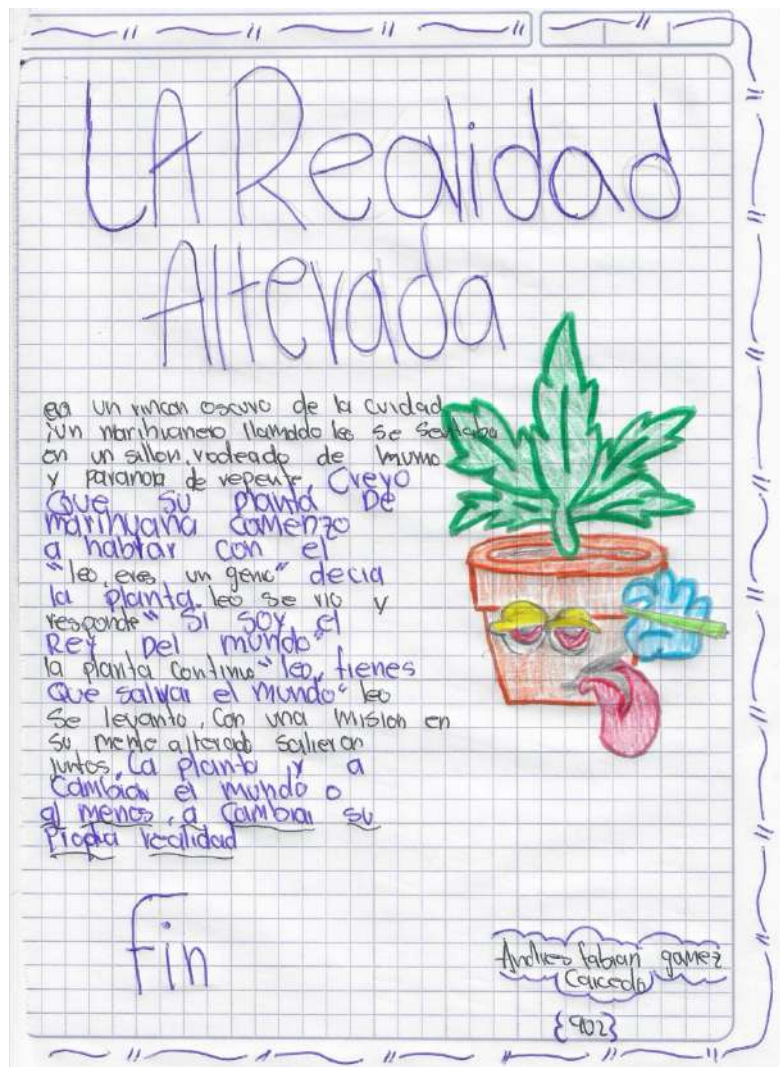 LA Realidad
Alterada
en un rincon oscuro de la cuidad
¡un marihuanero llamado leo se sentaba
en un sillon, rodeado de humo
y paranoia de repente, Creyo
Que su planta De
marihuana comenzo
a hablar con el
"leo, eres un genio" decia
la planta. leo se rio y
responde "Si soy el
Rey Del mundo"
la planta continuo "leo, tienes
Que salvar el mundo" leo
Se levanto, Con una mision en
su mente alterad salieron
juntos, La planta y a
Cambiar el mundo o
al menos, a Cambiar su
Propia realidad
Fin
Andres fabian gamez
Caicedo
{902}